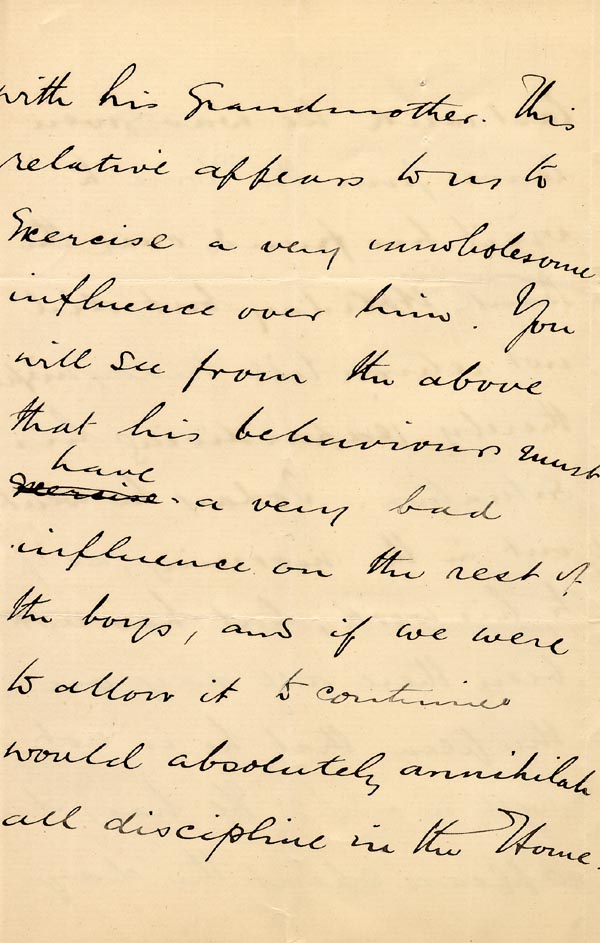 with his Grandmother. This
relative appears to us to
Exercise a very unwholesome
influence over him. You
will see from the above
that his behaviour must
have
exercise a very bad
influence on the rest of
the boys, and if we were
to allow it to continue
would absolutely annihilate
all discipline in the Home.